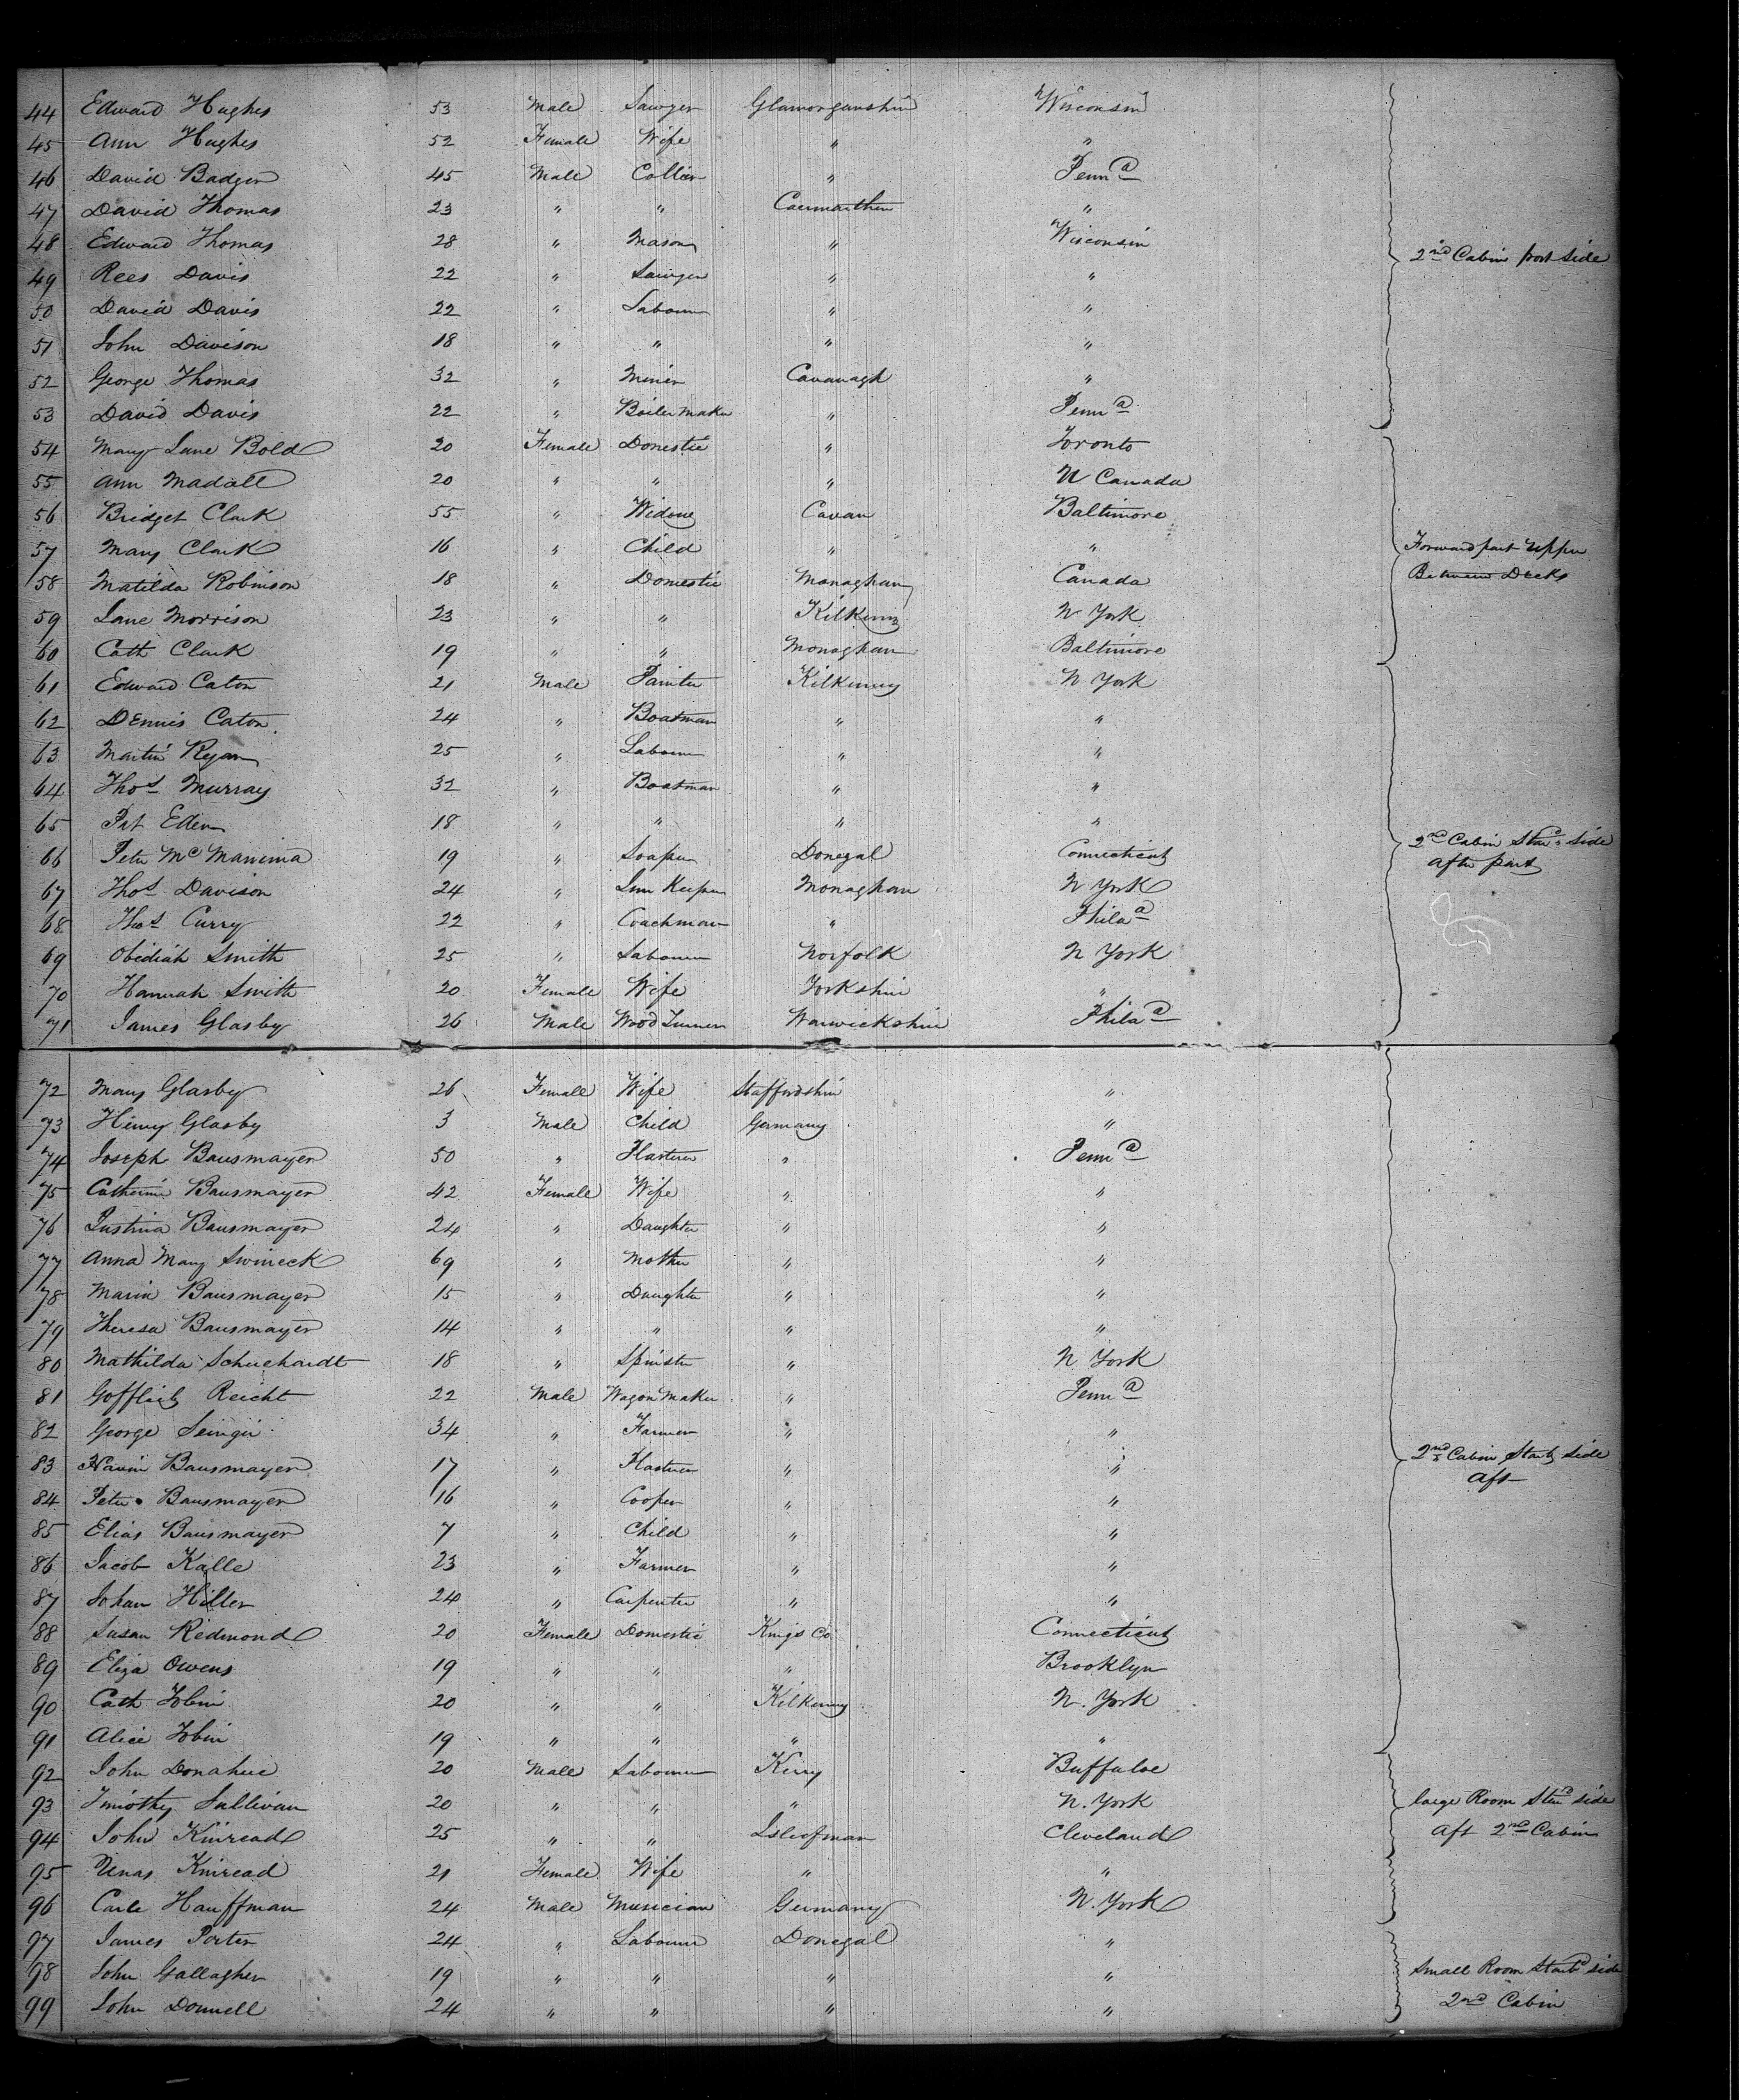 44 Edward Hughes 53 Male Sawyer Glamorganshire Wisconsin
45 Ann Hughes 52 Female Wife " "
46 David Badger 45 Male Collier " Penn a
47 David Thomas 23 " " Caermarthen "
48 Edward Thomas 28 " Mason " Wisconsin
2nd Cabin port side
49 Rees Davis 22 " Sawyer " "
50 David Davis 22 " Labourer " "
51 John Davison 18 " " " "
52 George Thomas 32 " Miner Cavanagh "
53 David Davis 22 " Boiler maker " Penn a
54 Mary Jane Bold 20 Female Domestic " Toronto
55 Ann Madall 20 " " " U Canada
56 Bridget Clark 55 " Widow Cavan Baltimore
57 Mary Clark 16 " Child " "
Forward part upper
58 Matilda Robinson 18 " Domestic Monaghan Canada
Between Decks
59 Jane Morrison 23 " " Kilkenny N York
60 Cath Clark 19 " " Monaghan Baltimore
61 Edward Caton 21 Male Painter Kilkenny N York
62 Dennis Caton 24 " Boatman " "
63 Martin Ryan 25 " Labourer " "
64 Thos Murray 32 " Boatman " "
65 Pat Eden 18 " " " "
2nd Cabin side
66 Peter Mc 19 " Donegal Connecticut
after part
67 Thos Davison 24 " Inn Keeper Monaghan N York
68 Thos Curry 22 " Coachman " Phila a
69 Obidiah Smith 25 " Labourer Norfolk N York
70 Hannah Smith 20 Female Wife Yorkshire "
71 James Glasby 26 Male Wood Turner Warwickshire Phila a
72 Mary Glasby 26 Female Wife Staffordshire "
73 Henry Glasby 3 Male Child Germany "
74 Joseph Bausmayer 50 " " Penn a
75 Catherine Bausmayer 42 Female Wife " "
76 Justina Bausmayer 24 " Daughter " "
77 Anna Mary Swineck 69 " Mother " "
78 Maria Bausmayer 15 " Daughter " "
79 Theresa Bausmayer 14 " " " "
80 Mathilda Schuchardt 18 " Spinster " N. York
81 Gofflieb Reicht 22 Male Wagon Maker " Penn a
82 George 34 " Farmer " "
83 Bausmayer 17 " " "
2nd Cabin Starb side
Aft
84 Peter Bausmayer 16 " Cooper " "
85 Elias Bausmayer 7 " Child " "
86 Jacob Kalle 23 " Farmer " "
87 Johan Hiller 24 " Carpenter " "
88 Susan Redmond 20 Female Domestic Kings Co Connecticut
89 Eliza Owens 19 " " " Brooklyn
90 Cath Tobin 20 " " Kilkenny N. York
91 Alice Tobin 19 " " " "
92 John Donahue 20 Male Labourer Kerry Buffaloe
93 Timothy Sullivan 20 " " " N. York
large Room side
94 John Kinread 25 " " Isleofman Cleveland
Aft 2nd Cabin
95 Kinread 21 Female Wife " "
96 Carle Hauffman 24 Male Musician Germany N. York
97 James Porter 24 " Labourer Donegal "
98 John Gallagher 19 " " " "
Small Room Starb side
99 John Donnell 24 " " " "
2nd Cabin